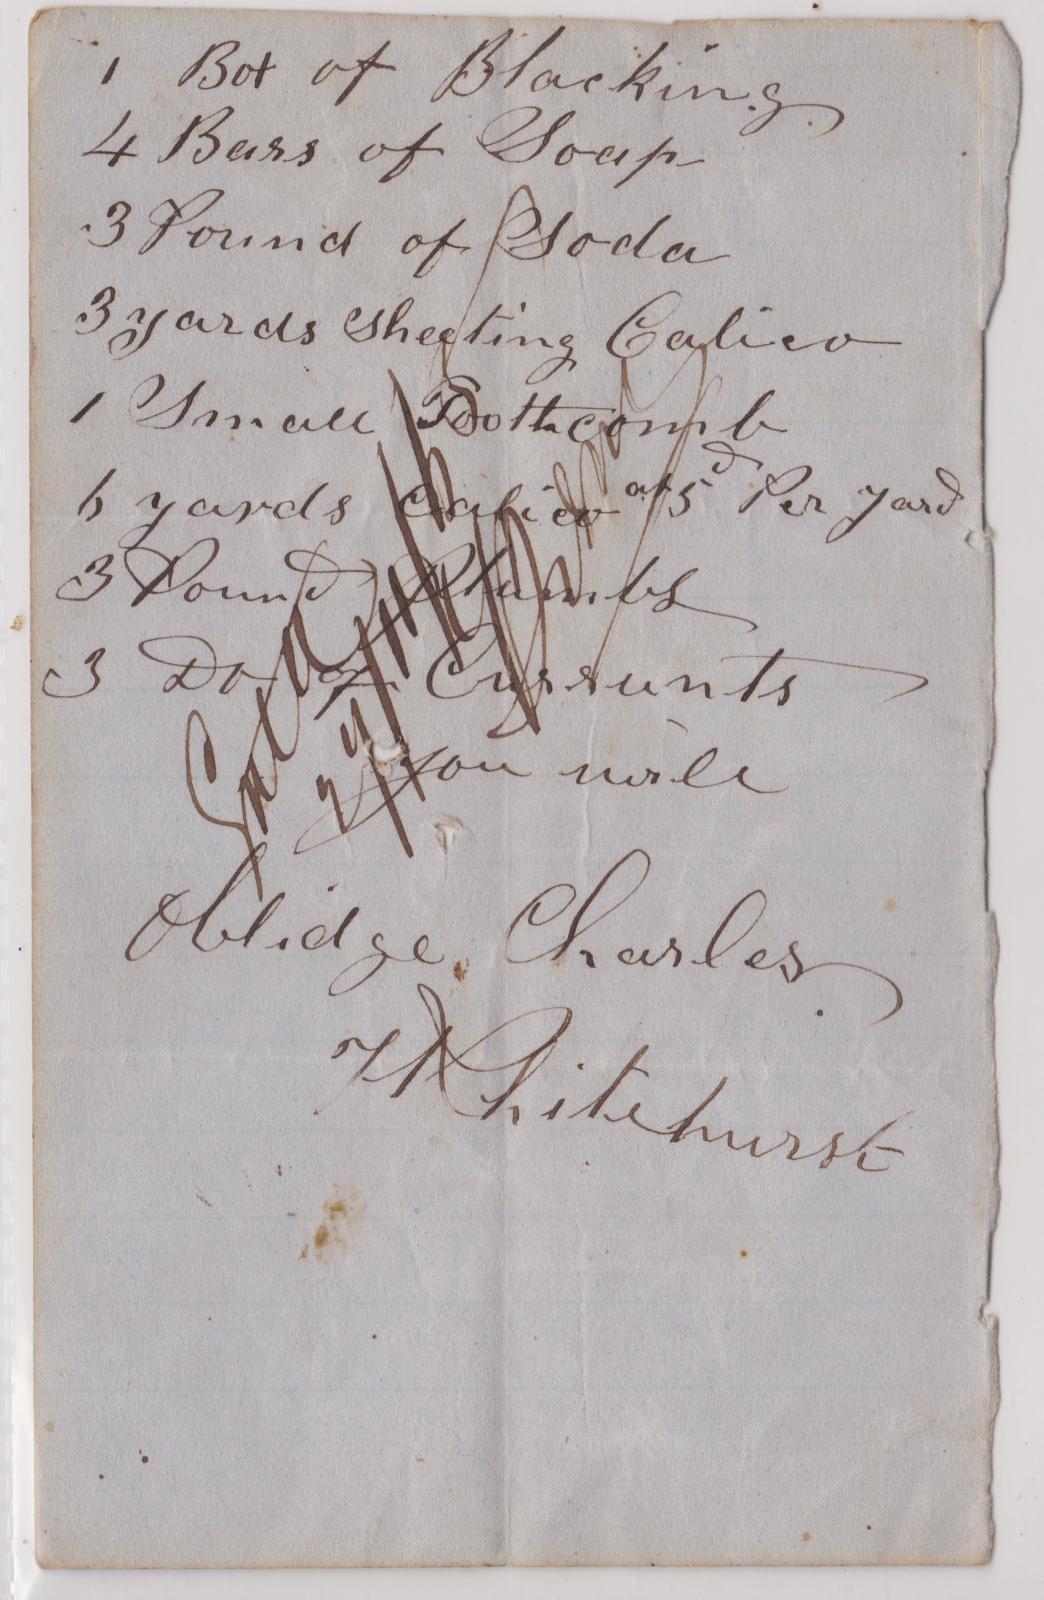 1 Box of Blacking
4 Bars of Soap
3 Pound of Soda
3 yards Sheeting Calico
1 Small Toothcomb
6 yards Calico at 5d Per yard
3 Pound Plumbs
3 Do of Currunts
you will
Oblidge Charles
Whitehurst